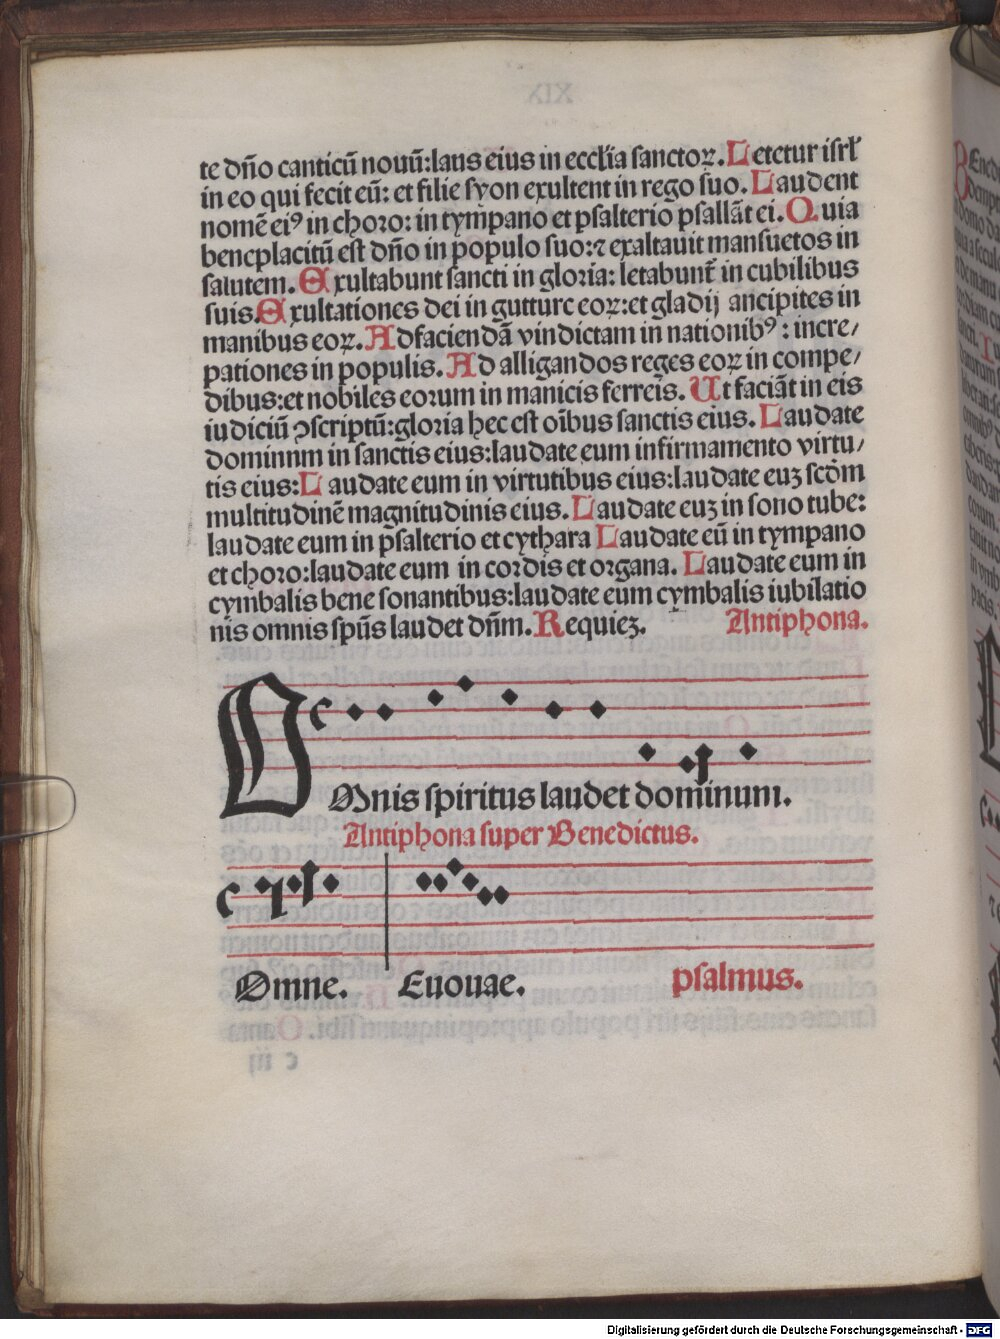 te dn̄o canticū nouū:laus eius in eccl̄ia sanctoꝝ. Letetur isrl̄
in eo qui fecit eū: et filie syon exultent in rego suo. Laudent
nomē ei⁹ in choro: in tym̄pano et psalterio psallāt ei. Quia
beneplacitū est dn̄o in populo suo:⁊ exaltauit mansuetos in
salutem. Exultabunt sancti in gloria: letabunt̄ in cubilibus
suis. Exultationes dei in gutture eoꝝ:et gladij ancipites in
manibus eoꝝ. Ad faciendā vindictam in nationib⁹: incre/
pationes in populis. Ad alligandos reges eoꝝ in compe/
dibus:et nobiles eorum in manicis ferreis. Ut faciāt in eis
iudiciū ꝯscriptū:gloria hec est oībus sanctis eius. Laudate
dominnm in sanctis eius:laudate eum infirmamento virtu/
tis eius: Laudate eum in virtutibus eius:laudate euꝫ scd̄m
multitudinē magnitudinis eius. Laudate euꝫ in sono tube:
laudate eum in psalterio et cythara Laudate eū in tympano
et choro:laudate eum in cordis et organa. Laudate eum in
cymbalis bene sonantibus:laudate eum cymbalis iubilatio
nis omnis spūs laudet dn̄m. Requieꝫ. Antiphona.
OMnis spiritus laudet dominum.
Antiphona super Benedictus.
Omne. Euouae. psalmus.
Digitalisierung gefördert durch die Deutsche Forschungsgemeinschaft - DFG